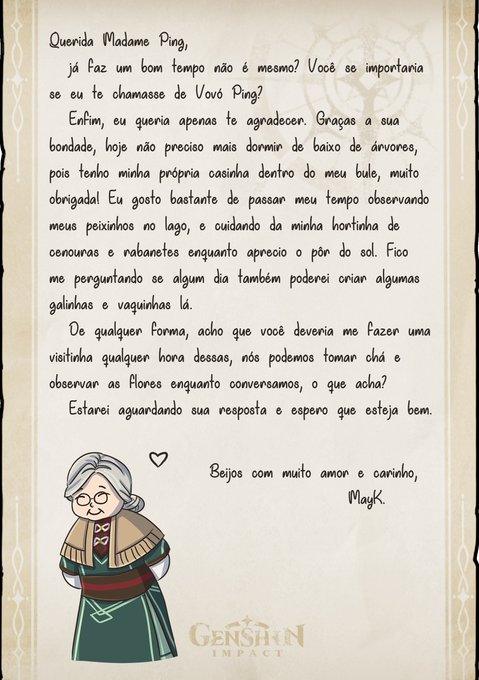 Querida Madame Ping,
já faz um bom tempo não é mesmo? Você se importaria
se eu te chamasse de Vovó Ping?
Enfim, eu queria apenas te agradecer. Graças a sua
bondade, hoje não preciso mais dormir de baixo de árvores,
pois tenho minha própria casinha dentro do meu bule, muito
obrigada! Eu gosto bastante de passar meu tempo observando
meus peixinhos no lago, e cuidando da minha hortinha de
cenouras e rabanetes enquanto aprecio o pôr do sol. Fico
me perguntando se algum dia também poderei criar algumas
galinhas e vaquinhas lá.
De qualquer forma, acho que você deveria me fazer uma
visitinha qualquer hora dessas, nós podemos tomar chá e
observar as flores enquanto conversamos, o que acha?
Estarei aguardando sua resposta e espero que esteja bem.
Beijos com muito amor e carinho,
MayK.
GENSHIN
IMPACT